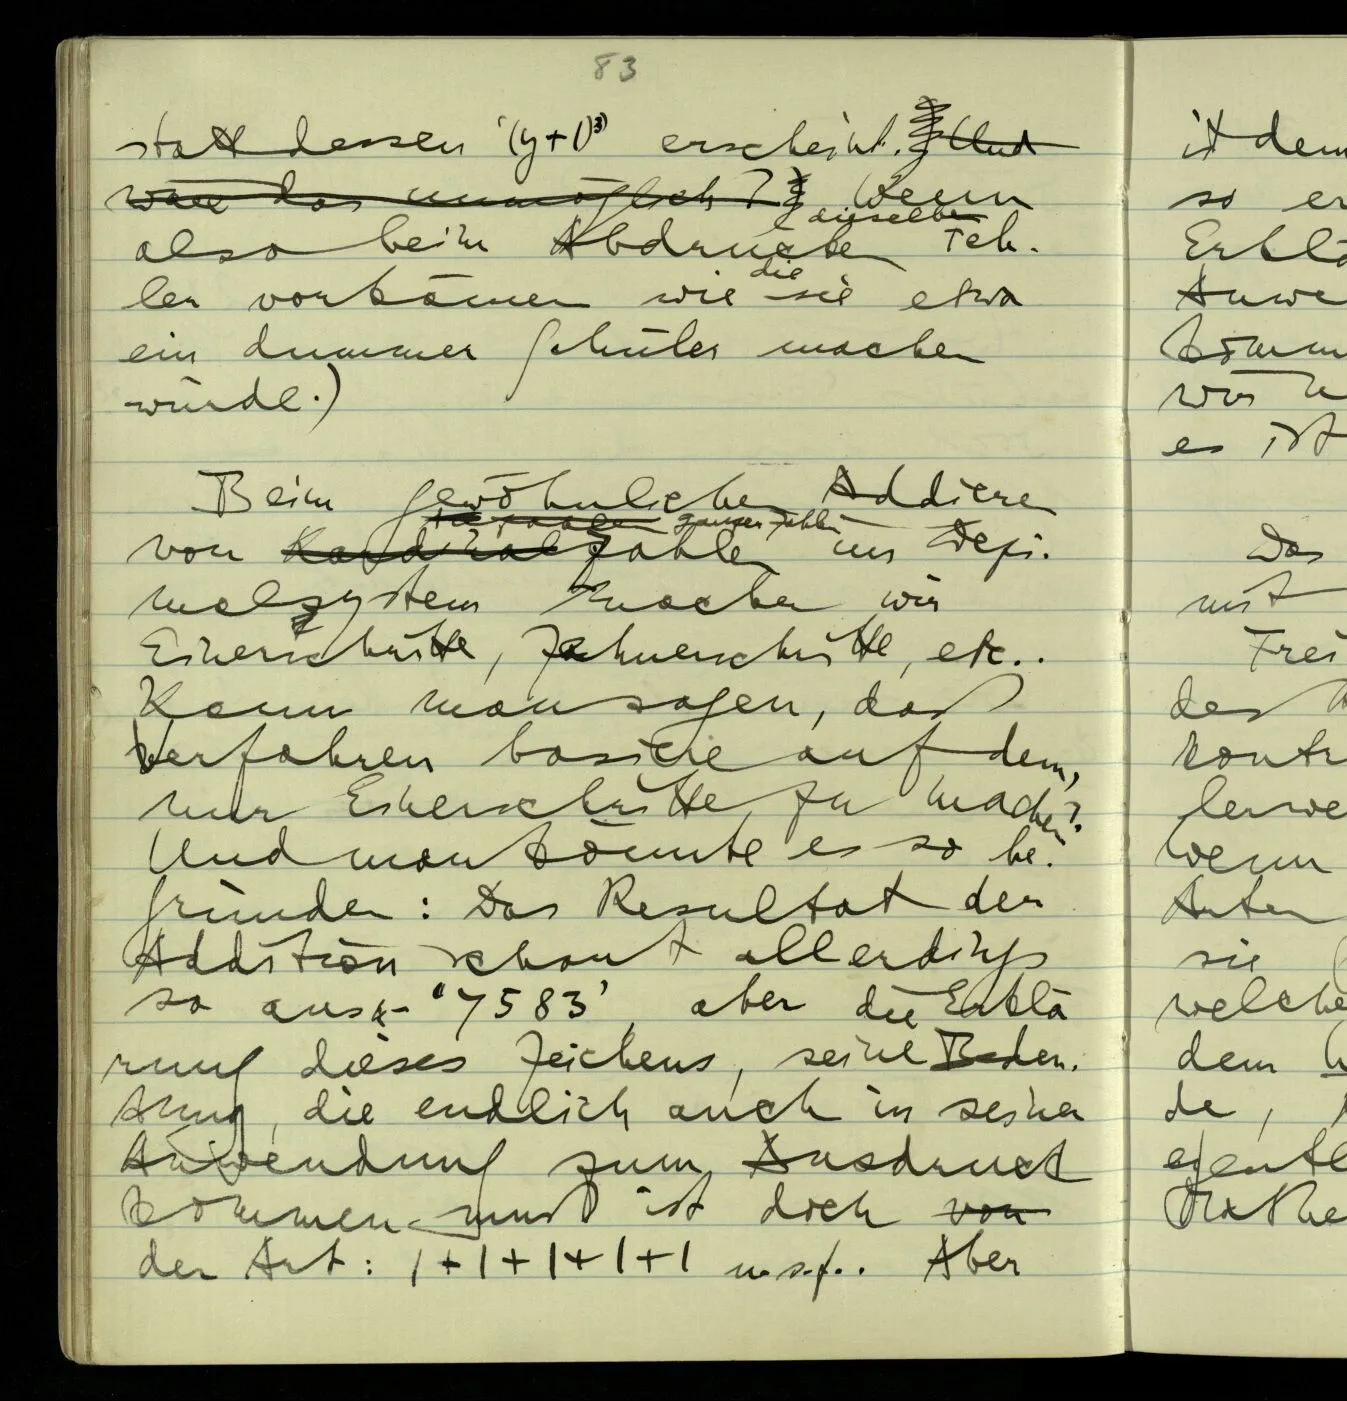 83
statt dessen '(y+1)³' erscheint. Und
wäre das unmöglich? Wenn
also beim Abdrucken dieselben Feh-
ler vorkämen wie die sie etwa
ein dummer Schüler machen
würde.)
Beim gewöhnlichen Addieren
von Kardinalzahlen ganzer Zahlen im Dezi-
malsystem machen wir
Einerschritte, Zehnerschritte, etc..
Kann man sagen, das
Verfahren basiere auf dem,
nur Einerschritte zu machen?
Und man könnte es so be-
gründen: Das Resultat der
Addition schaut allerdings
so aus – '7583', aber die Erklä
rung dieses Zeichens, seine Bedeu-
tung, die endlich auch in seiner
Anwendung zum Ausdruck
kommen muß ist doch von
der Art: 1+1+1+1+1 u.s.f.. Aber
ist dem
so er
Erklä
Anwe
es ist
Das
mit
Frei
des
kontr
lerwe
Wenn
sie
welche
dem
de,
eigentl
Mathe